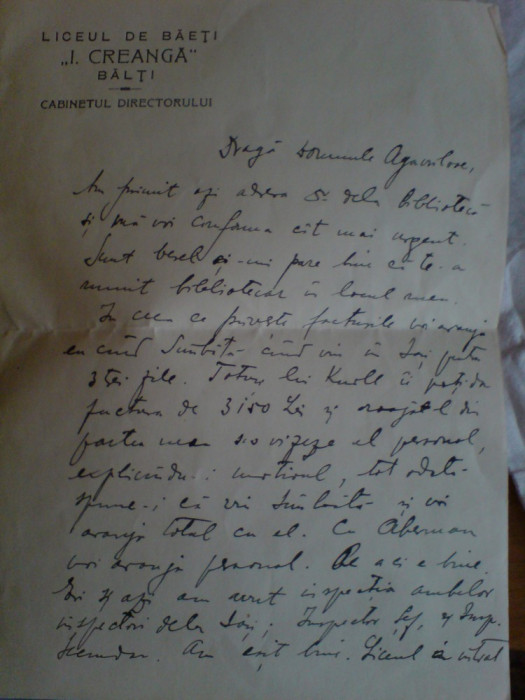 LICEUL DE BĂEŢI
„I. CREANGĂ"
BĂLŢI
CABINETUL DIRECTORULUI
Dragă Domnule Agavriloae,
Am primit azi adresa dela bibliotecă
şi mă voi conforma cît mai urgent.
Sunt vesel şi-mi pare bine că te-a
numit bibliotecar în locul meu.
În ceea ce priveşte facturile voi aranja
eu când Sâmbătă când vin în Iaşi
zile. Totuşi lui îi
factura de 3150 Lei şi din
partea mea s-o vizeze el personal,
explicându-i motivul, tot odată
spune-i că vin Sâmbătă şi voi
aranja total cu el. Cu Aberman
voi aranja personal. Pe aci e bine.
Eri şi azi am avut inspecţia ambilor
inspectori dela Iaşi; Inspector Şef, şi Insp.
Secundar. Am eşit bine. Liceul a intrat